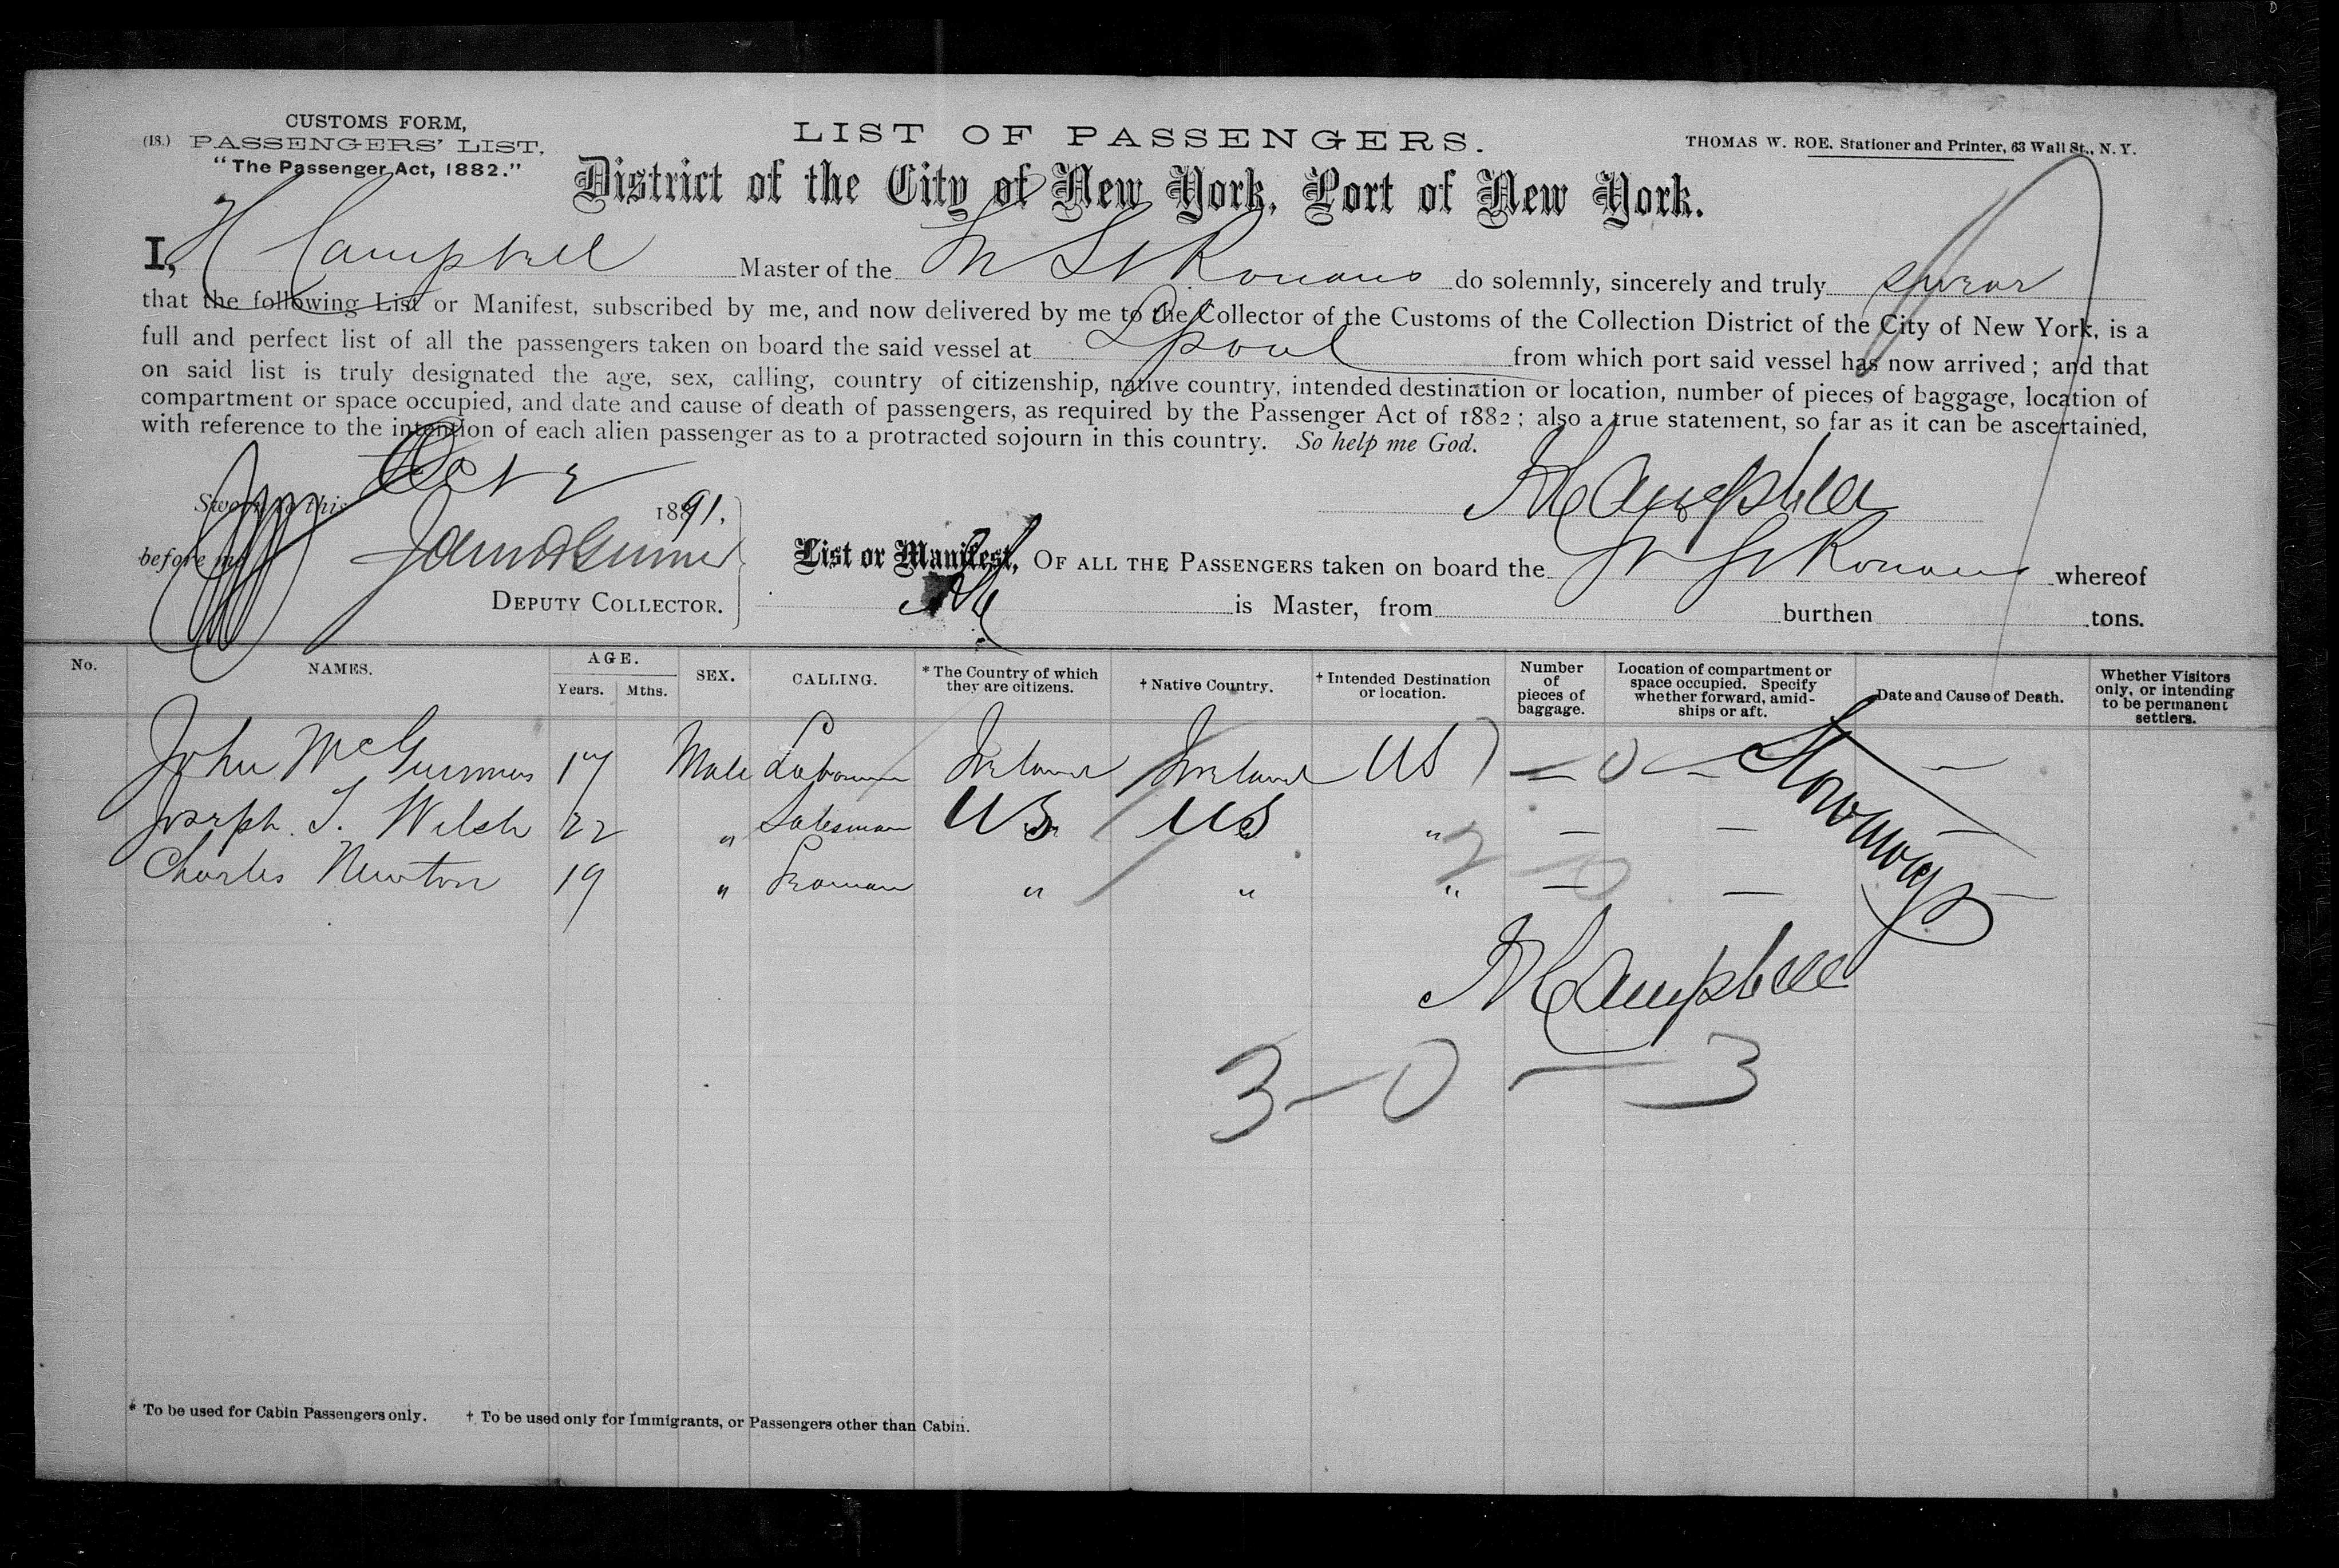 CUSTOMS FORM,
(18.) PASSENGERS' LIST.
"The Passenger Act, 1882."
LIST OF PASSENGERS.
THOMAS W. ROE. Stationer and Printer, 63 Wall St., N. Y.
District of the City of New York, Port of New York.
I, H Campbell Master of the St Ronans do solemnly, sincerely and truly swear
that the following List or Manifest, subscribed by me, and now delivered by me to the Collector of the Customs of the Collection District of the City of New York, is a
full and perfect list of all the passengers taken on board the said vessel at Lpool from which port said vessel has now arrived; and that
on said list is truly designated the age, sex, calling, country of citizenship, native country, intended destination or location, number of pieces of baggage, location of
compartment or space occupied, and date and cause of death of passengers, as required by the Passenger Act of 1882; also a true statement, so far as it can be ascertained,
with reference to the intention of each alien passenger as to a protracted sojourn in this country. So help me God.
Sworn to this Oct 2 1891.
H Campbell
before me
DEPUTY COLLECTOR.
List or Manifest, OF ALL THE PASSENGERS taken on board the St Ronans whereof
is Master, from burthen tons.
No. NAMES. AGE. Years. Mths. SEX. CALLING. * The Country of which they are citizens. † Native Country. † Intended Destination or location. Number of pieces of baggage. Location of compartment or space occupied. Specify whether forward, amidships or aft. Date and Cause of Death. Whether Visitors only, or intending to be permanent settlers.
John McGuinnes 17 Male Labourer Ireland Ireland US 1 — 0 — —
Joseph T. Welsh 22 " Salesman US US " — — —
Charles Newton 19 " " " " — — —
2 — 0
Stowaways
H Campbell
3 — 0 — 3
* To be used for Cabin Passengers only. † To be used only for Immigrants, or Passengers other than Cabin.